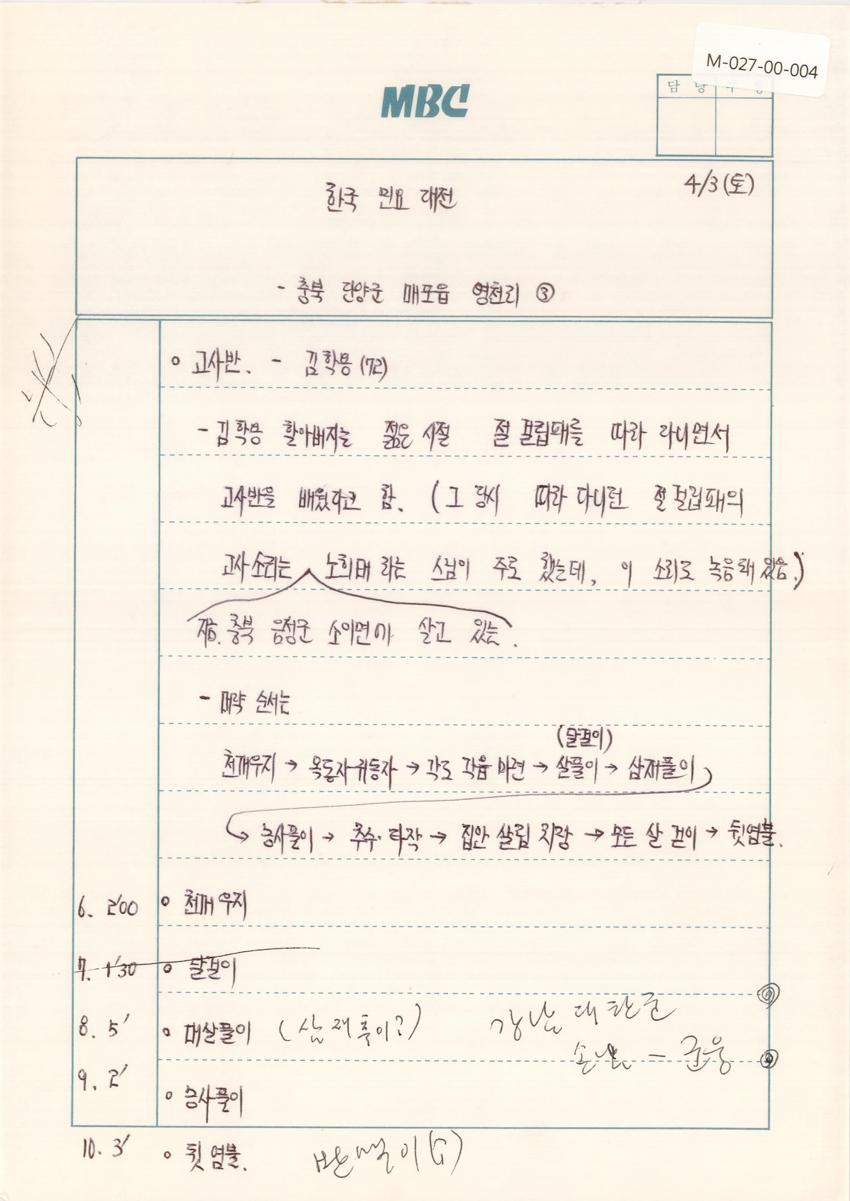 M-027-00-004
MBC
담 당
4/3(토)
한국 민요 대전
- 충북 단양군 매포읍 영천리 ③
o 고사반. - 김학용 (72)
- 김학용 할아버지는 젊은 시절 절 걸립패를 따라 다니면서
고사반을 배웠다고 함. (그 당시 따라 다니던 절 걸립패의
고사소리는 노희태 라는 스님이 주로 했는데, 이 소리도 녹음돼 있음.)
충북 음성군 소이면에 살고 있는.
- 대략 순서는
(달걸이)
천개우지 → 옥동자귀동자 → 각도 각읍 마련 → 살풀이 → 삼재풀이
→ 농사풀이 → 추수·타작 → 집안 살림 치장 → 모든 살 걷이 → 뒷염불.
6. 2'00 o 천개우지
7. 1'30 o 달걸이
8. 5' o 대살풀이 (삼재 ?) 강남 대한국
손님 -
9. 2' o 농사풀이
10. 3' o 뒷염불.